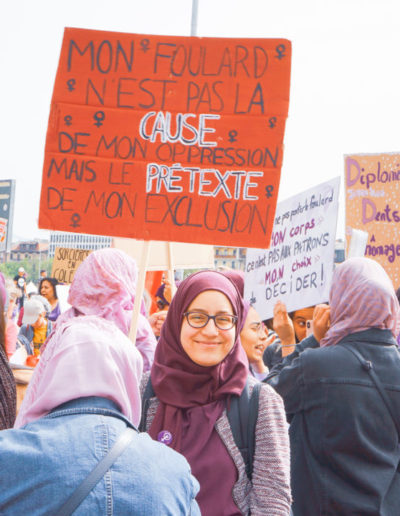 MON FOULARD
N'EST PAS LA
CAUSE
DE MON OPPRESSION
MAIS LE PRÉTEXTE
DE MON EXCLUSION
porter le foulard
MON corps
PAS AUX PATRONS
MON choix
DÉCIDER!
Diplôm
Dents